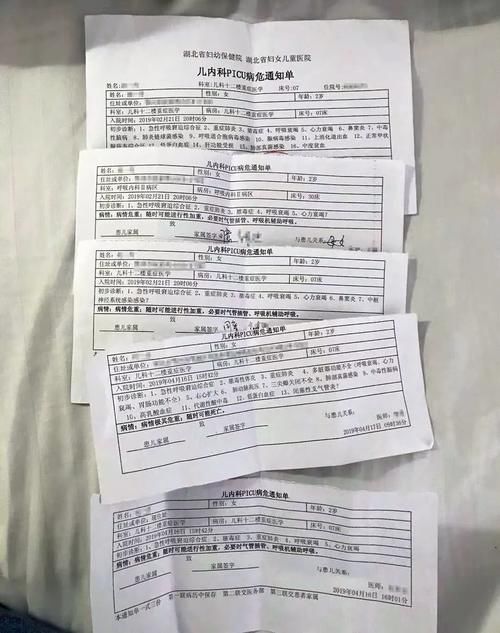 湖北省妇幼保健院 湖北省妇女儿童医院
儿内科PICU病危通知单
姓名: 性别:女 年龄:2岁
科室:儿科十二楼重症医学 床号:07 住院号:
住址或单位:
入院时间:2019年02月21日 20时06分
初步诊断:1、急性呼吸窘迫综合征 2、重症肺炎 3、脓毒症 4、呼吸衰竭 5、心力衰竭 6、鼻窦炎 7、中毒
儿内科PICU病危通知单
姓名: 性别:女 年龄:2岁
住址或单位:
科室:呼吸内科Ⅲ病区 病房:呼吸内科Ⅲ病区 床号:30床
入院时间:2019年02月21日 20时06分
初步诊断:1、急性呼吸窘迫综合征 2、重症肺炎 3、脓毒症 4、呼吸衰竭 5、心力衰竭?
病情:病情危重,随时可能进行性加重,必要时气管插管、呼吸机辅助呼吸。
致
患儿家属 家属签字 与患儿关系:
儿内科PICU病危通知单
姓名: 性别:女 年龄:2岁
住址或单位:
科室:儿科十二楼重症医学 病房:儿科十二楼重症医学 床号:07床
入院时间:2019年02月21日 20时06分
初步诊断:1、急性呼吸窘迫综合征 2、重症肺炎 3、脓毒症 4、呼吸衰竭 5、心力衰竭 6、鼻窦炎 7、中枢
神经系统感染?
病情:病情危重,随时可能进行性加重,必要时气管插管、呼吸机辅助呼吸。
致
患儿家属 家属签字
儿内科PICU病危通知单
姓名: 性别:女 年龄:2岁
住址或单位:
科室:儿科十二楼重症医学 病房:儿科十二楼重症医学 床号:07床
入院时间:2019年04月16日 15时42分
初步诊断:1、急性呼吸窘迫综合征 2、脓毒性休克 3、重症肺炎 4、多脏器功能不全(呼吸衰竭、心力
衰竭、胃肠功能不全) 5、右心扩大 6、肺动脉高压 7、三尖瓣关闭不全 8、肺部真菌感染 9、中毒性脑病
10、高乳酸血症 11、代谢性酸中毒 12、低蛋白血症 13、闭塞性支气管炎?
病情:病情极其危重,随时可能死亡。
致
患儿家属 家属签字 与患儿关系: 医师:
2019年04月17日 09时36分
儿内科PICU病危通知单
姓名: 性别:女 年龄:2岁
住址或单位:
科室:儿科十二楼重症医学 病房:儿科十二楼重症医学 床号:07床
入院时间:2019年04月16日 15时42分
初步诊断:1、急性呼吸窘迫综合征 2、重症肺炎 3、脓毒症 4、呼吸衰竭 5、心力衰竭?
病情:病情危重,随时可能进行性加重,必要时气管插管、呼吸机辅助呼吸。
致
患儿家属 家属签字 与患儿关系:
医师:
2019年04月16日 16时01分
本通知单一式三份 第一联病历中保存 第二联交医务部 第三联交患者家属